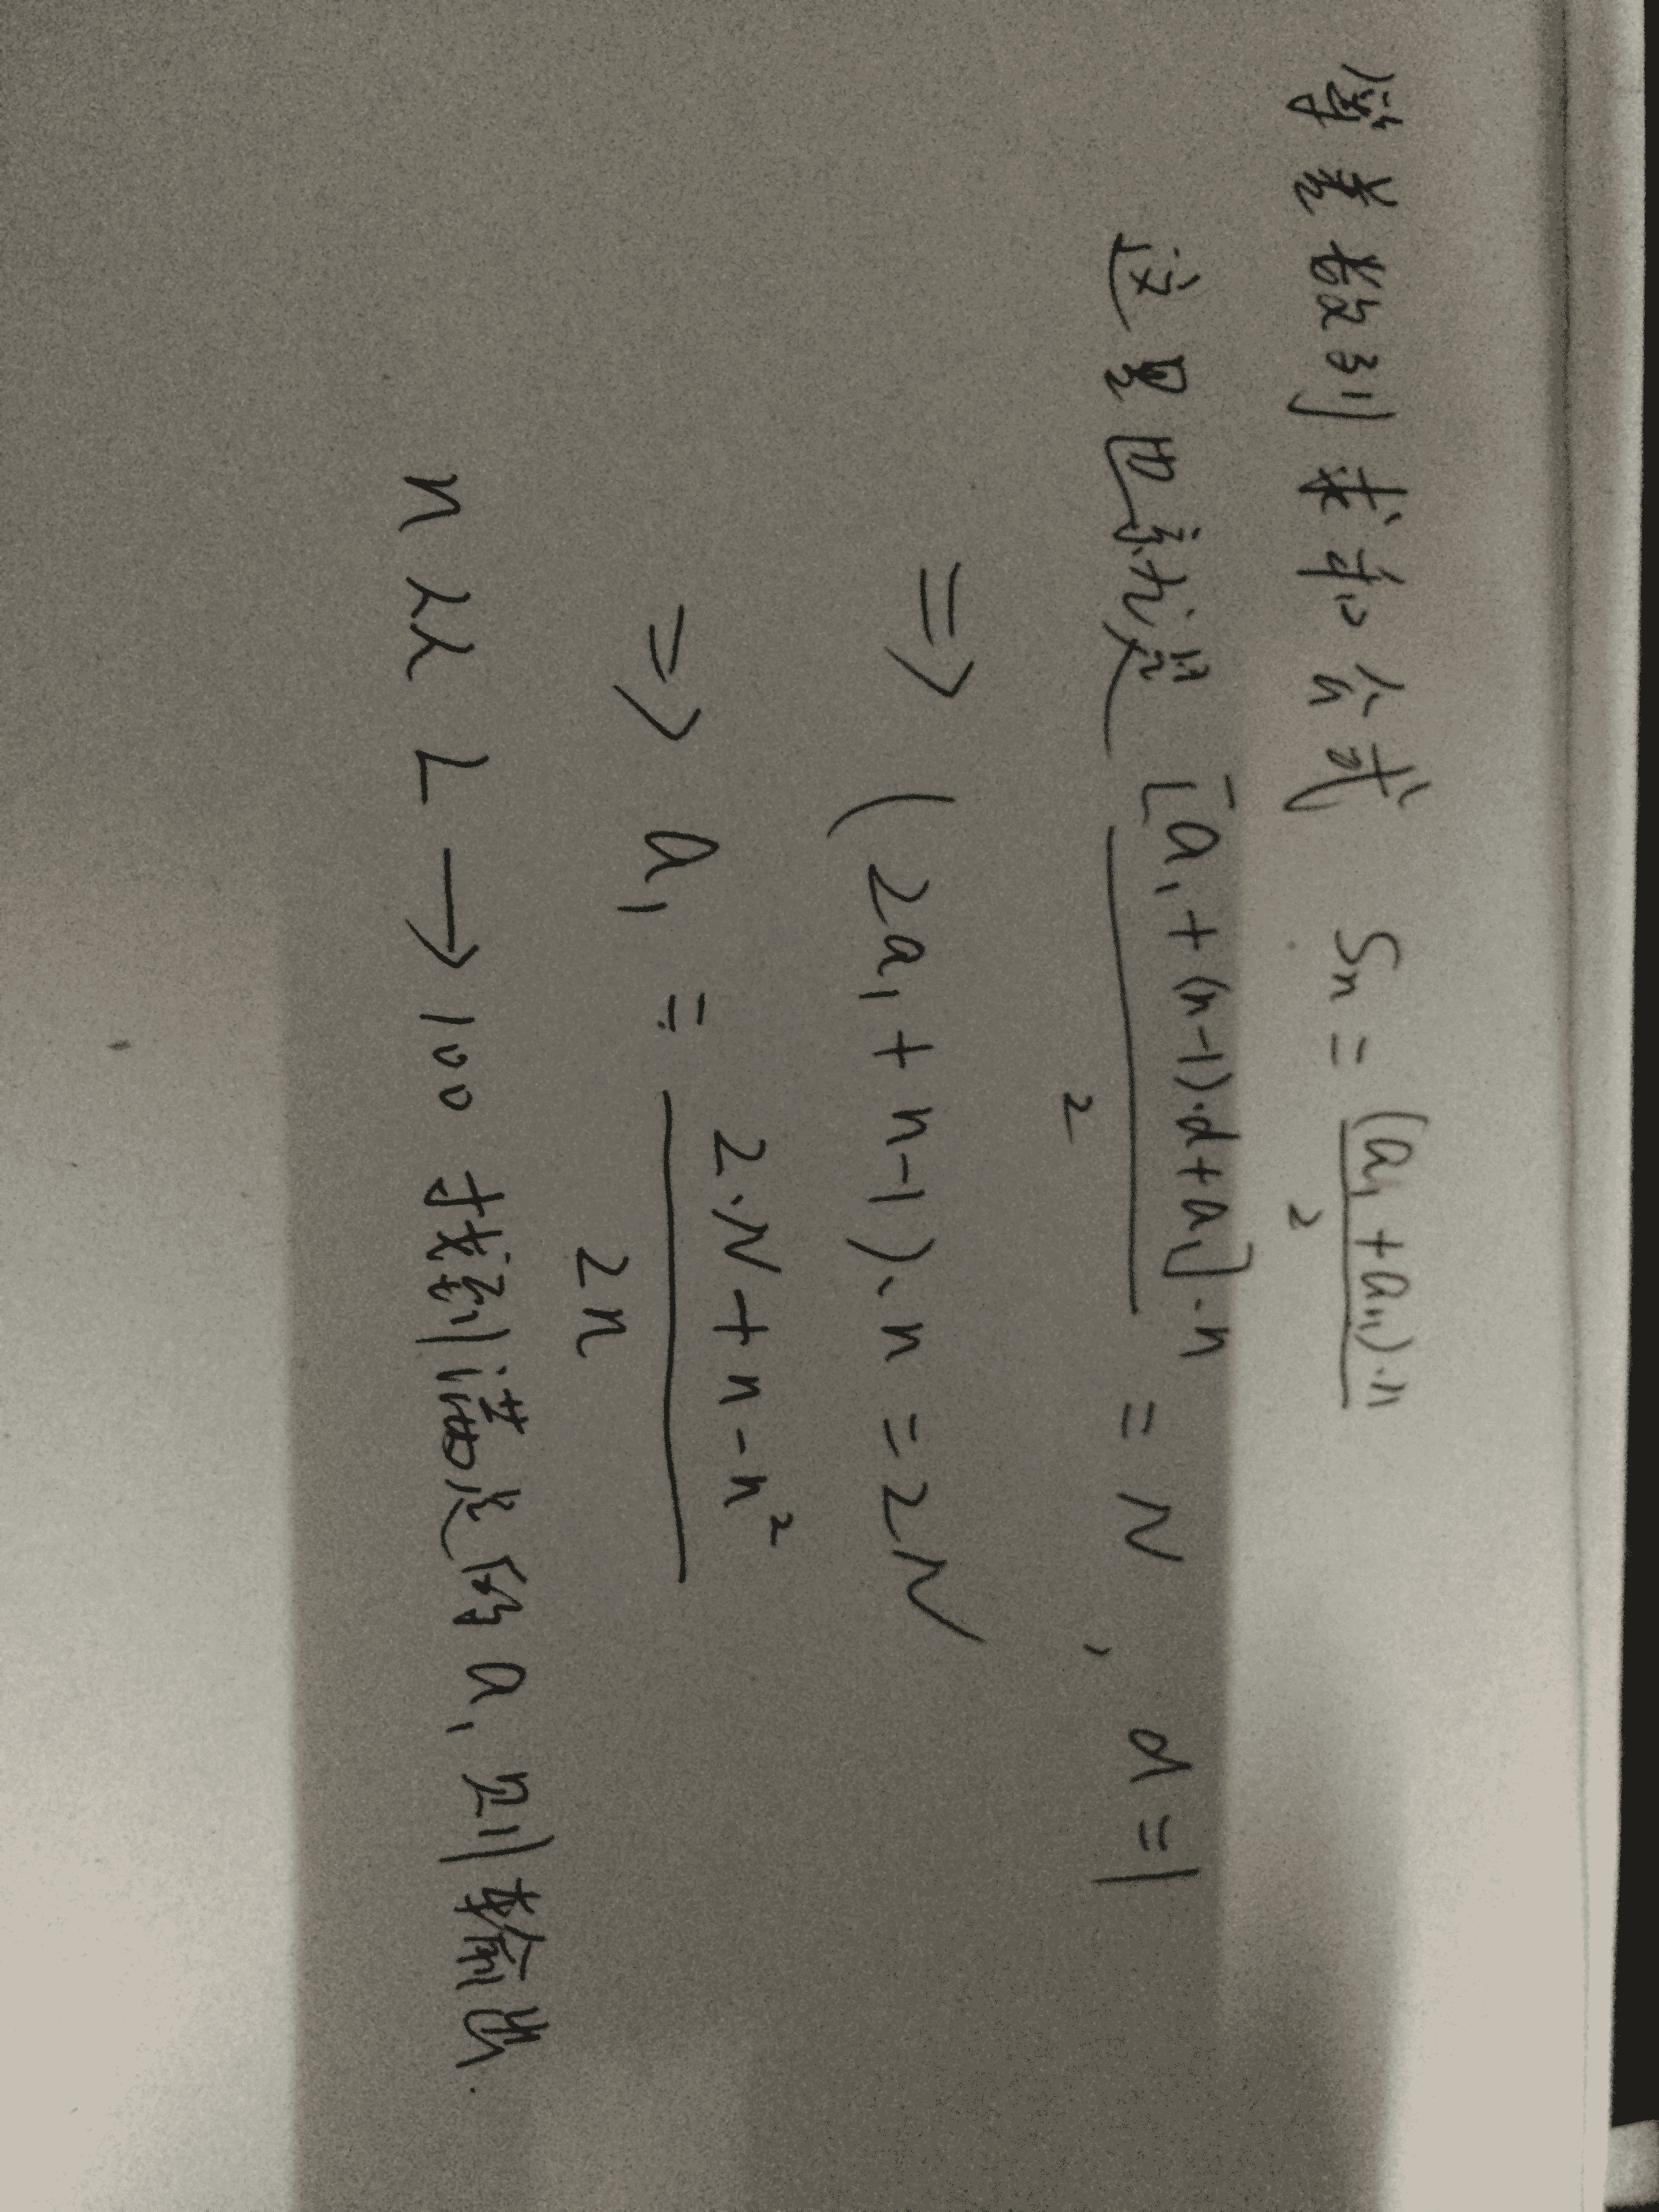 等差数列求和公式 Sn = (a₁+aₙ)·n / 2
这里也就是 [a₁+(n-1)·d+a₁]·n / 2 = N , d=1
=> (2a₁+n-1)·n = 2N
=> a₁ = 2·N+n-n² / 2n
n 从 L → 100 找到满足的 a₁ 则输出.